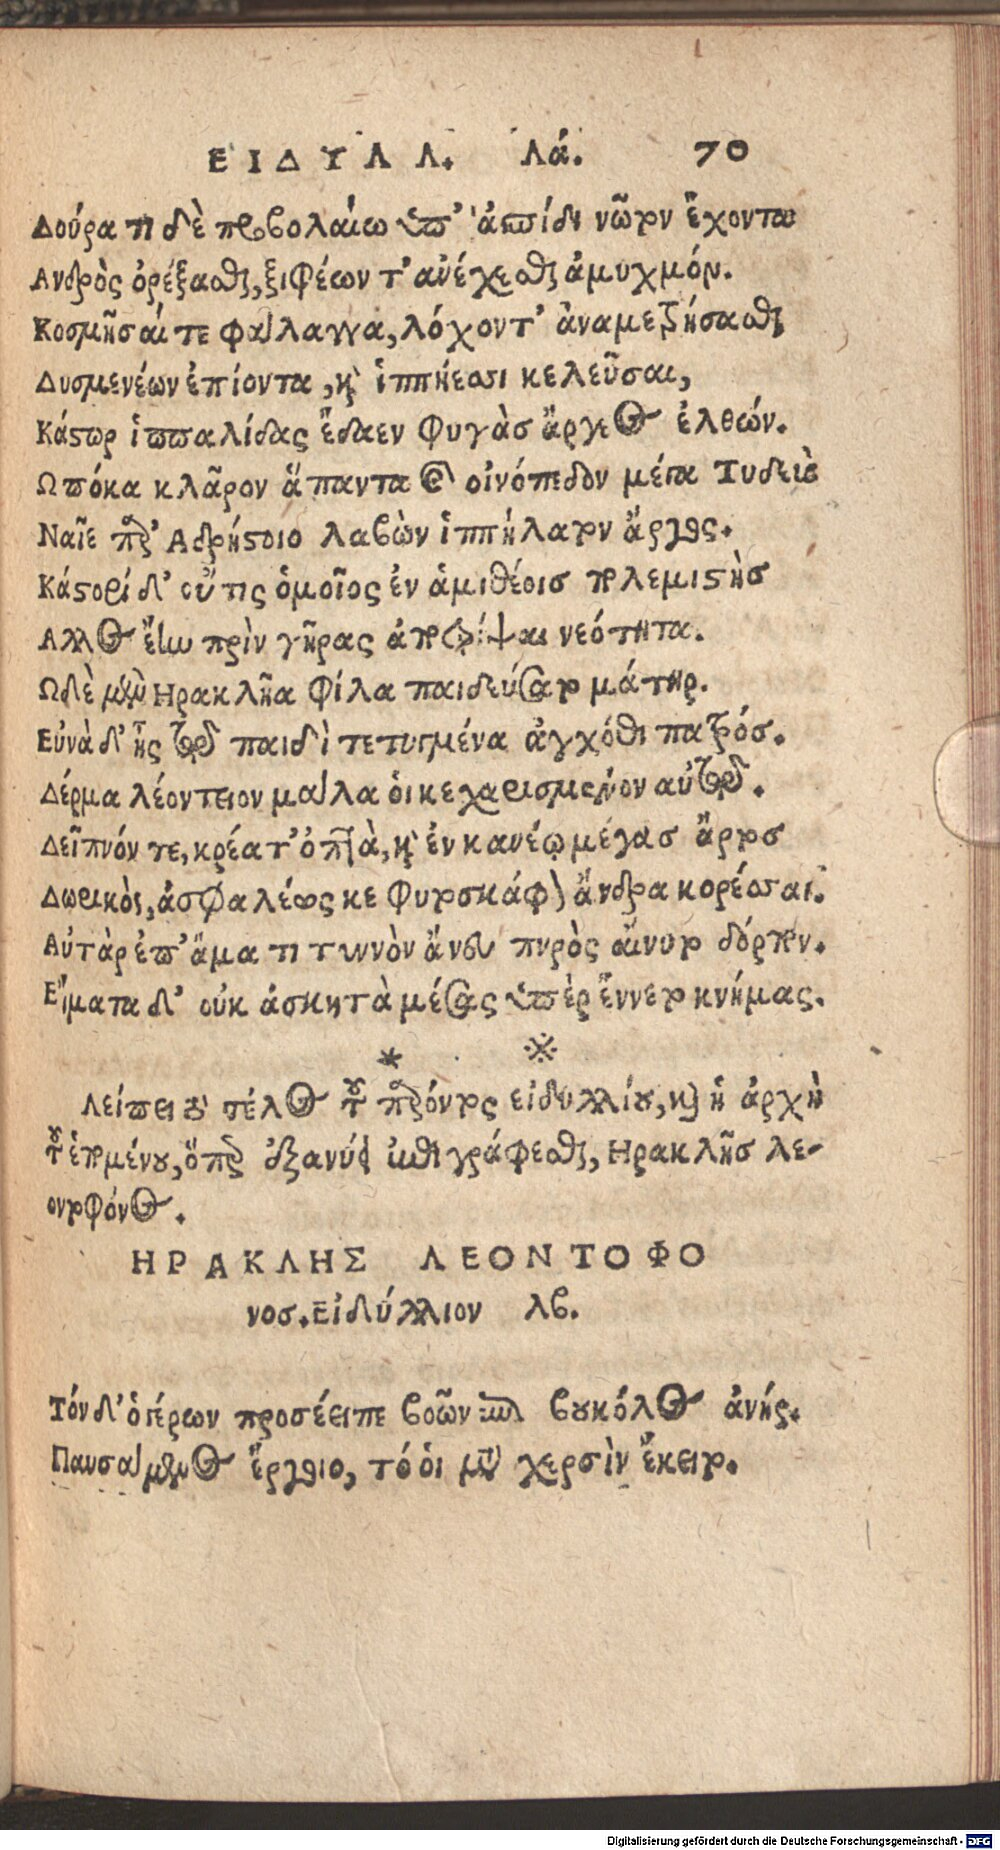 ΕΙΔΥΛΛ. λά. 70
Δούρατι δὲ προβολαίῳ ὑπ' ἀσπίδι νῶτον ἔχοντα
Ανδρὸς ὀρέξασθαι, ξιφέων τ' ἀνέχεσθαι ἀμυχμόν.
Κοσμῆσαί τε φάλαγγα, λόχοντ' ἀναμετρήσασθαι
Δυσμενέων ἐπίοντα, καὶ ἱππήεσσι κελεῦσαι,
Κάστωρ ἱππαλίδας ἔδαεν φυγὰσ ἄργεος ἐλθών.
Ωπόκα κλᾶρον ἅπαντα καὶ οἰνόπεδον μέγα Τυδεὺς
Ναῖε παρ' Αδρήστοιο λαβὼν ἱππήλατον ἄργος.
Κάστορι δ' οὔτις ὁμοῖος ἐν ἁμιθέοισ πολεμιστὴσ
Αλλος ἔην πρὶν γῆρας ἀποτρίψαι νεότητα.
Ωδὲ μὲν Ηρακλῆα φίλα παιδεύσατο μάτηρ.
Εὐνὰ δ' ἦς τῷ παιδὶ τετυγμένα ἀγχόθι πατρόσ.
Δέρμα λέοντειον μάλα οἱ κεχαρισμένον αὐτῷ.
Δεῖπνόν τε, κρέα τ' ὀπτὰ, καὶ ἐν κανέῳ μέγασ ἄρτοσ
Δωρικὸς, ἀσφαλέως κε φυτοσκάφον ἄνδρα κορέσσαι.
Αὐτὰρ ἐπ' ἄματι τυννὸν ἄνευ πυρὸς αἴνυτο δόρπον.
Εἵματα δ' οὐκ ἀσκητὰ μέσας ὑπὲρ ἕννυτο κνήμας.
* ※
Λείπει τὸ τέλος τοῦ παρόντος εἰδυλλίου, καὶ ἡ ἀρχὴ
τοῦ ἑπομένου, ὅπερ ἐπιγράφεσθαι, Ηρακλῆσ λε-
οντοφόνος.
ΗΡΑΚΛΗΣ ΛΕΟΝΤΟΦΟ
νοσ. Εἰδύλλιον λβ.
Τόν δ' ὁ γέρων προσέειπε βοῶν ἐπὶ βουκόλος ἀνής.
Παυσάμενος ἔργοιο, τό οἱ μετὰ χερσὶν ἔκειτο.
Digitalisierung gefördert durch die Deutsche Forschungsgemeinschaft - DFG